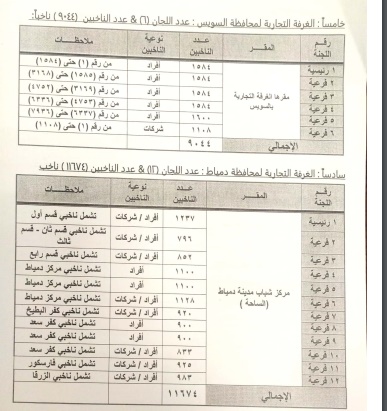 خامساً : الغرفة التجارية لمحافظة السويس : عدد اللجان (٦) & عدد الناخبين (٩٠٤٤) ناخباً.
رقم اللجنة | المقر | عدد الناخبين | نوعية الناخبين | ملاحظات
١ رئيسية | مقرها الغرفة التجارية بالسويس | ١٥٨٤ | أفراد | من رقم (١) حتى (١٥٨٤)
٢ فرعية | ١٥٨٤ | أفراد | من رقم (١٥٨٥) حتى (٣١٦٨)
٣ فرعية | ١٥٨٤ | أفراد | من رقم (٣١٦٩) حتى (٤٧٥٢)
٤ فرعية | ١٥٨٤ | أفراد | من رقم (٤٧٥٣) حتى (٦٣٣٦)
٥ فرعية | ١٦٠٠ | أفراد | من رقم (٦٣٣٧) حتى (٧٩٣٦)
٦ فرعية | ١١٠٨ | شركات | من رقم (١) حتى (١١٠٨)
الإجمالي | ٩٠٤٤
سادساً : الغرفة التجارية لمحافظة دمياط : عدد اللجان (١٢) & عدد الناخبين (١١٦٧٤) ناخب
رقم اللجنة | المقر | عدد الناخبين | نوعية الناخبين | ملاحظات
١ رئيسية | مركز شباب مدينة دمياط (الساحة) | ١٢٣٧ | أفراد / شركات | تشمل ناخبي قسم أول
٢ فرعية | ٧٩٦ | أفراد / شركات | تشمل ناخبي قسم ثان - قسم ثالث
٣ فرعية | ٨٥٢ | أفراد / شركات | تشمل ناخبي قسم رابع
٤ فرعية | ١١٠٠ | أفراد | تشمل ناخبي مركز دمياط
٥ فرعية | ١١٠٠ | أفراد | تشمل ناخبي مركز دمياط
٦ فرعية | ١١٢٨ | أفراد / شركات | تشمل ناخبي مركز دمياط
٧ فرعية | ٩٢٠ | أفراد / شركات | تشمل ناخبي كفر البطيخ
٨ فرعية | ٩٠٠ | أفراد | تشمل ناخبي كفر سعد
٩ فرعية | ٩٠٠ | أفراد | تشمل ناخبي كفر سعد
١٠ فرعية | ٨٣٣ | أفراد / شركات | تشمل ناخبي كفر سعد
١١ فرعية | ٩٢٥ | أفراد / شركات | تشمل ناخبي فارسكور
١٢ فرعية | ٩٨٣ | أفراد / شركات | تشمل ناخبي الزرقا
الإجمالي | ١١٦٧٤